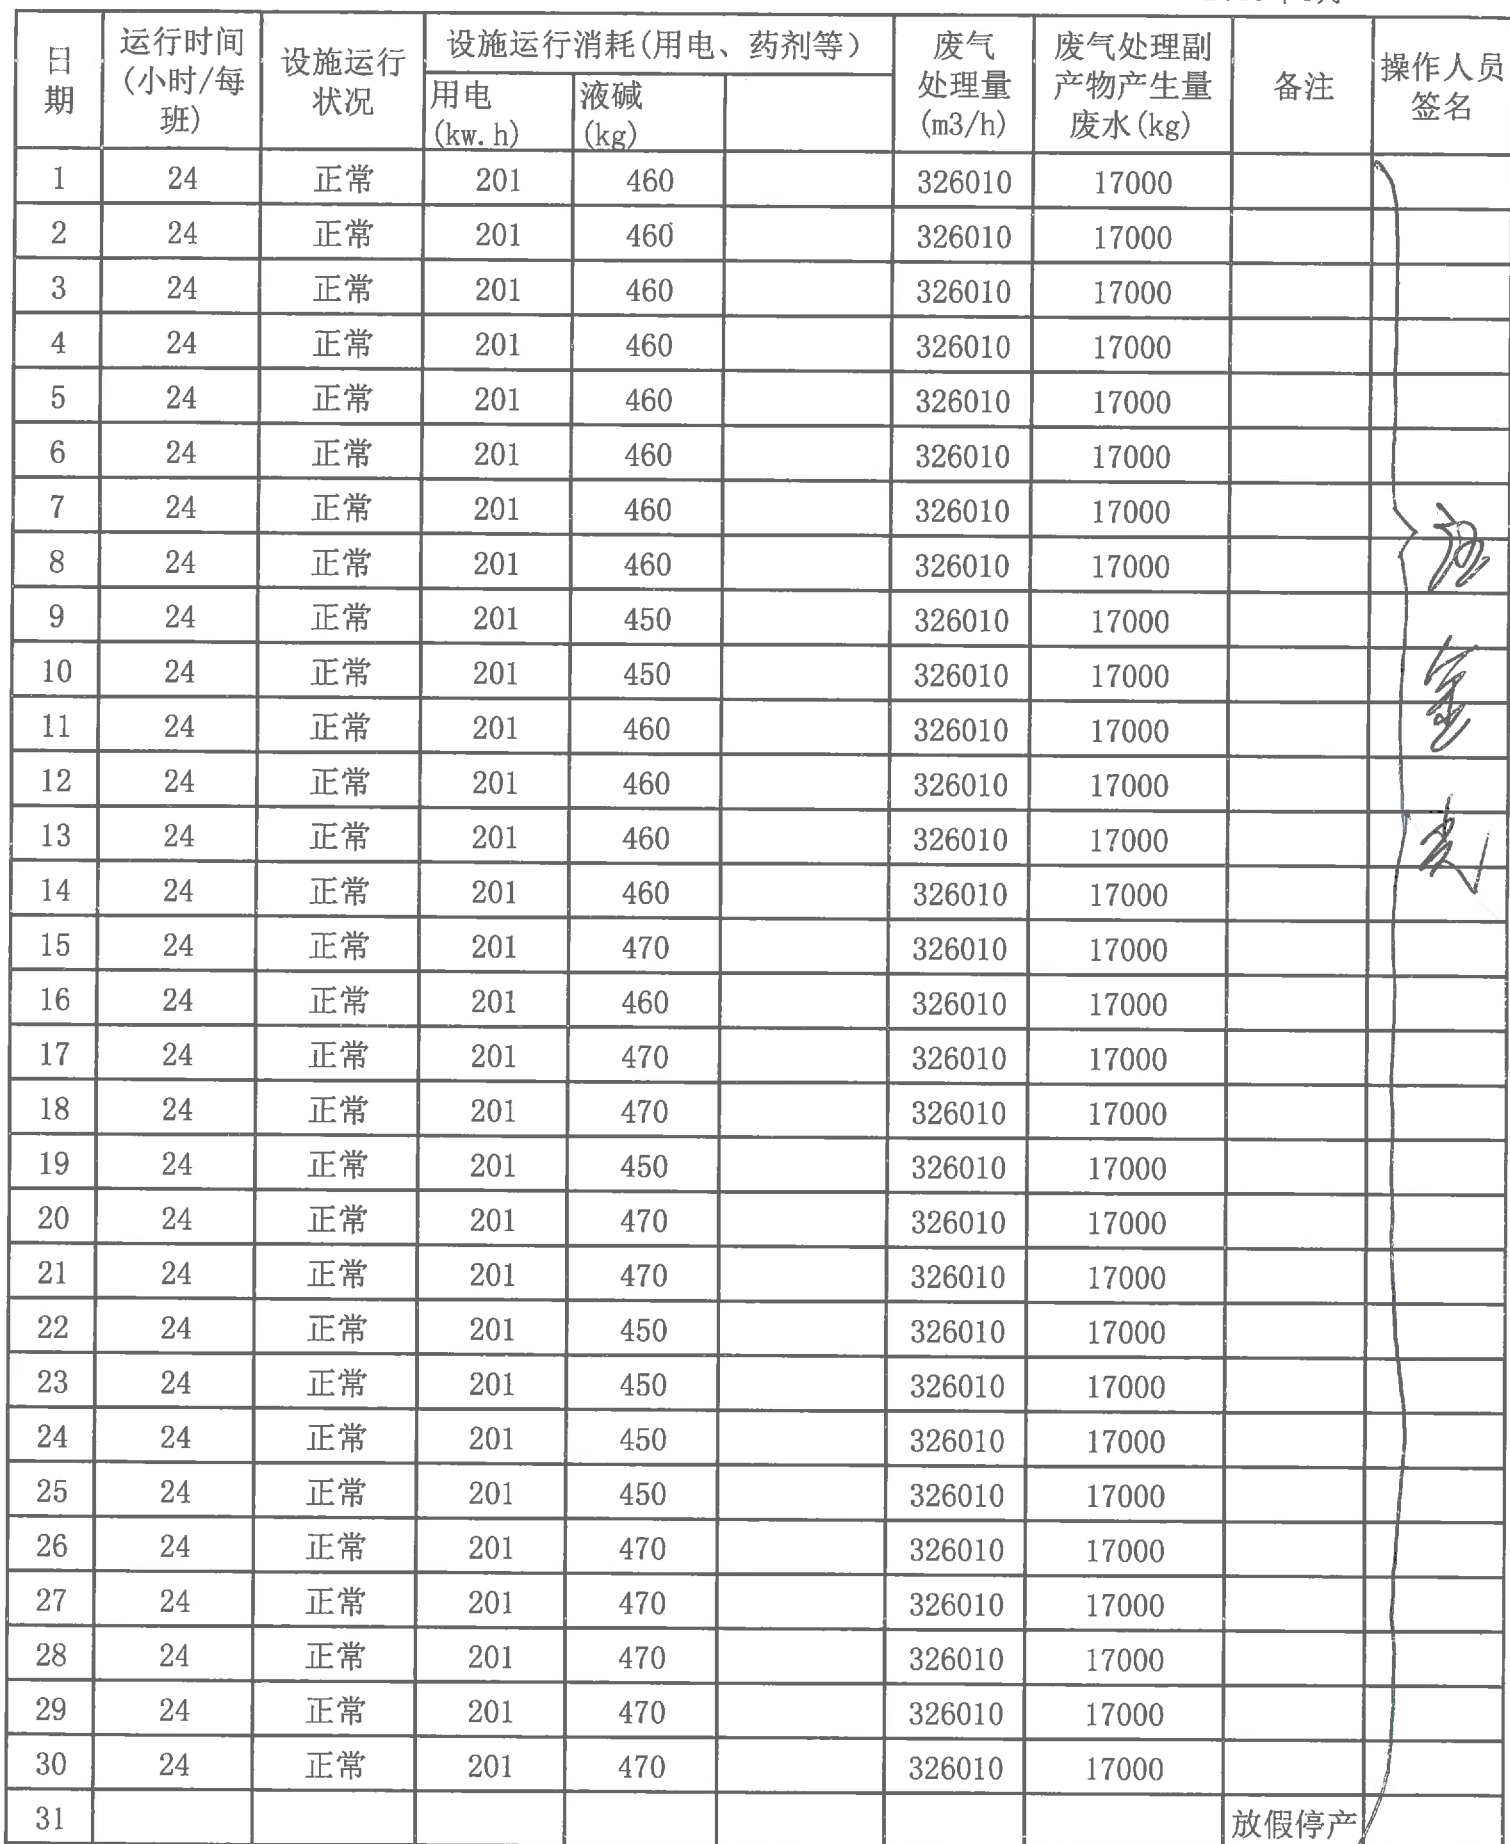 日期 运行时间(小时/每班) 设施运行状况 设施运行消耗(用电、药剂等) 废气处理量(m3/h) 废气处理副产物产生量废水(kg) 备注 操作人员签名
用电(kw.h) 液碱(kg)
1 24 正常 201 460 326010 17000
2 24 正常 201 460 326010 17000
3 24 正常 201 460 326010 17000
4 24 正常 201 460 326010 17000
5 24 正常 201 460 326010 17000
6 24 正常 201 460 326010 17000
7 24 正常 201 460 326010 17000
8 24 正常 201 460 326010 17000
9 24 正常 201 450 326010 17000
10 24 正常 201 450 326010 17000
11 24 正常 201 460 326010 17000
12 24 正常 201 460 326010 17000
13 24 正常 201 460 326010 17000
14 24 正常 201 460 326010 17000
15 24 正常 201 470 326010 17000
16 24 正常 201 460 326010 17000
17 24 正常 201 470 326010 17000
18 24 正常 201 470 326010 17000
19 24 正常 201 450 326010 17000
20 24 正常 201 470 326010 17000
21 24 正常 201 470 326010 17000
22 24 正常 201 450 326010 17000
23 24 正常 201 450 326010 17000
24 24 正常 201 450 326010 17000
25 24 正常 201 450 326010 17000
26 24 正常 201 470 326010 17000
27 24 正常 201 470 326010 17000
28 24 正常 201 470 326010 17000
29 24 正常 201 470 326010 17000
30 24 正常 201 470 326010 17000
31 放假停产